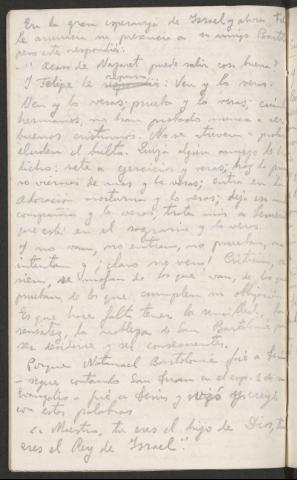 En la gran esperanza de Israel y ahora Fel
le anuncia su presencia a su amigo Bartol
pero este respondió:
— "¿Acaso de Nazaret puede salir cosa buena?
Y Felipe le repuso: Ven y lo verás.
Ven y lo verás; prueba y lo verás; cuántos
hermanos, no han probado nunca a ser
buenos cristianos. No se atreven a probar
eluden el bulto. Quizá algún amigo le ha
dicho: vete a ejercicios y verás; haz los prime
ros viernes de mes y lo verás; entra en la
adoración nocturna y lo verás; deja esa mala
compañía y lo verás; trata más a Jesús
que está en el sagrario y lo verás.
Y no van, no entran, no prueban, no
intentan y ¡claro no ven! Critican, se
ríen, se mofan de los que van, de los que
prueban, de los que cumplen su obligación.
Es que hace falta tener la sencillez, la
sensatez, la nobleza de San Bartolomé para
ser decidirse y ser consecuentes.
Porque Natanael Bartolomé fué a Jesús
— sigue contando San Juan en el cap. 1 de su
Evangelio — fué a Jesús y oyó y creyó
con estas palabras
"Maestro, tu eres el hijo de Dios, tu
eres el Rey de Israel".